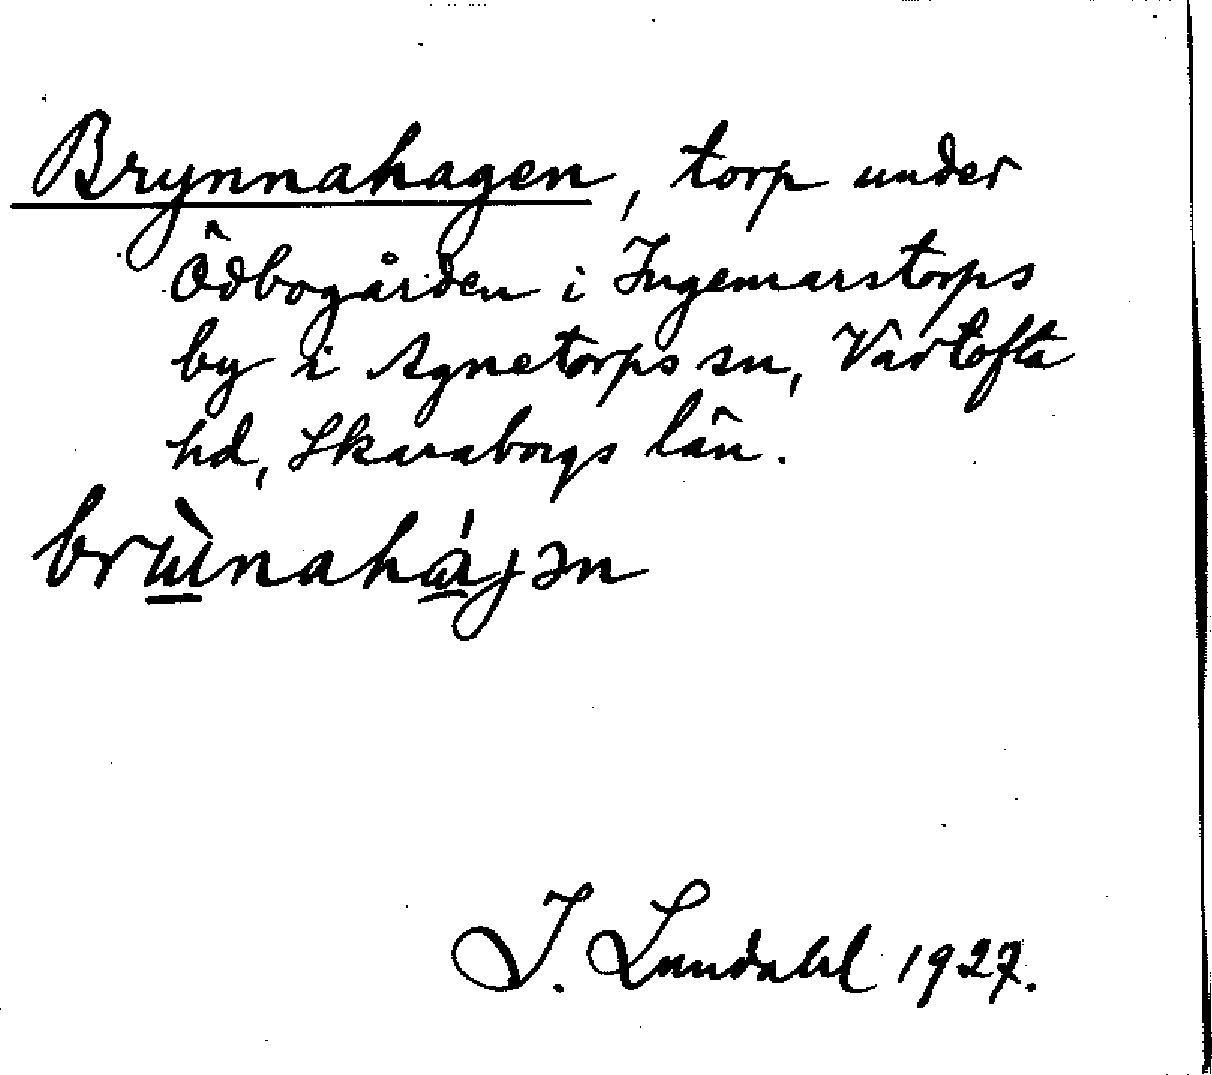 Brynnahagen, torp under
Ödbogården i Ingemarstorps
by i Agnetorps sn, Vartofta
hd, Skaraborgs län.
J. Lundahl 1927.